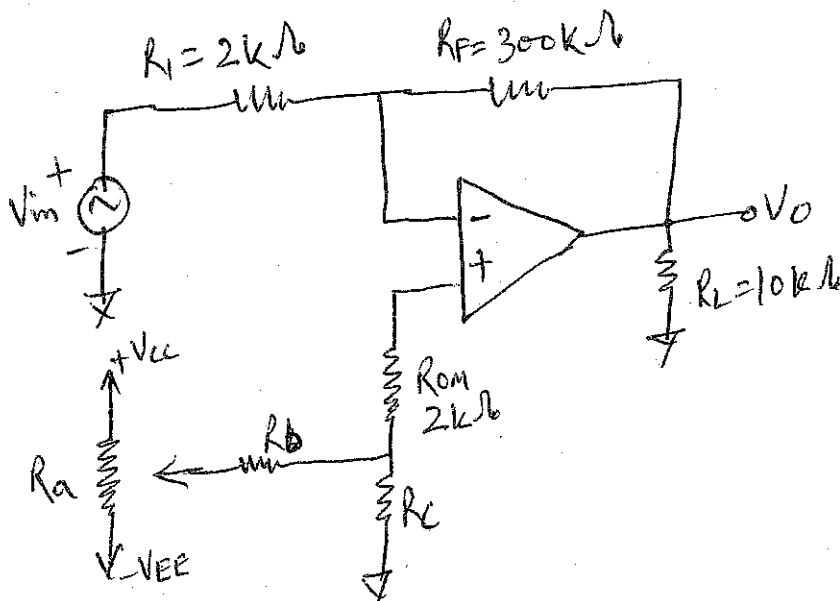 R1 = 2kΩ
RF = 300kΩ
Vin
+
-
-
+
Vo
RL = 10kΩ
+Vcc
ROM
2kΩ
Rb
Ra
Rc
-VEE